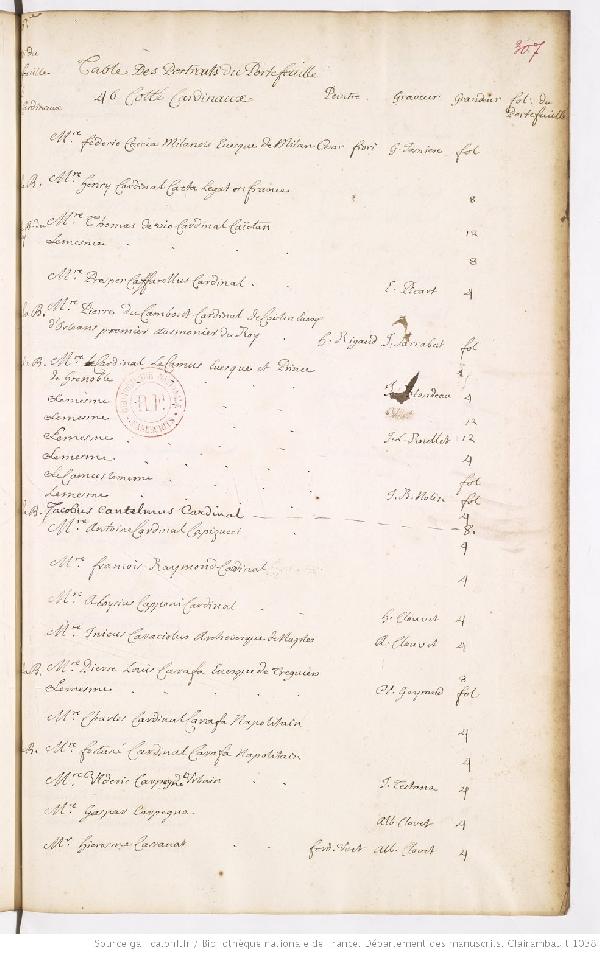 307
Table Des Portraits du Portefeuille
46 Cotté Cardinaux Peintre Graveur Grandeur fol. du Portefeuille
Mre féderic Caccia Milanois Evesque de Milan Cesar fiori G. Tasniere fol
Mre henry Cardinal Caeta legat en france 8
Mre Thomas de vio Cardinal Caïetan 12
Lemesme 8
Mre Prosper Caffarellus Cardinal E. Picart 4
Mre Pierre du Cambout Cardinal de Coislin
d'Orleans premier Aumonier du Roy h. Rigaud J. Sarrabat fol
Mre le Cardinal Le Camus Evesque et Prince
de Grenoble
Lemesme 4
Lemesme 12
Lemesme 12
Lemesme 4
Le Camus lemesme fol
Lemesme J. B. Nolin fol
Jacobus Cantelmus Cardinal 4
Mre Antoine Cardinal Capizucci 8
4
Mre francois Raymond Cardinal 4
Mre Aloysius Capponi Cardinal h. Clouvet 4
Mre Inicus Caraciolus Archevesque de Naples A. Clouvet 4
Mre Pierre Louis Carafa Evesque de 8
Lemesme fol
Mre Charles Cardinal Carafa Napolitain 4
Mre fortuné Cardinal Carafa Napolitain 4
Mre Ulderic Carpegne J. Testana 4
Mre Gaspar Carpegna Alb. Clovet 4
Mre hierosme Casanat Alb. Clovet 4
Source gallica.bnf.fr / Bibliothèque nationale de France. Département des manuscrits. Clairambault 1038